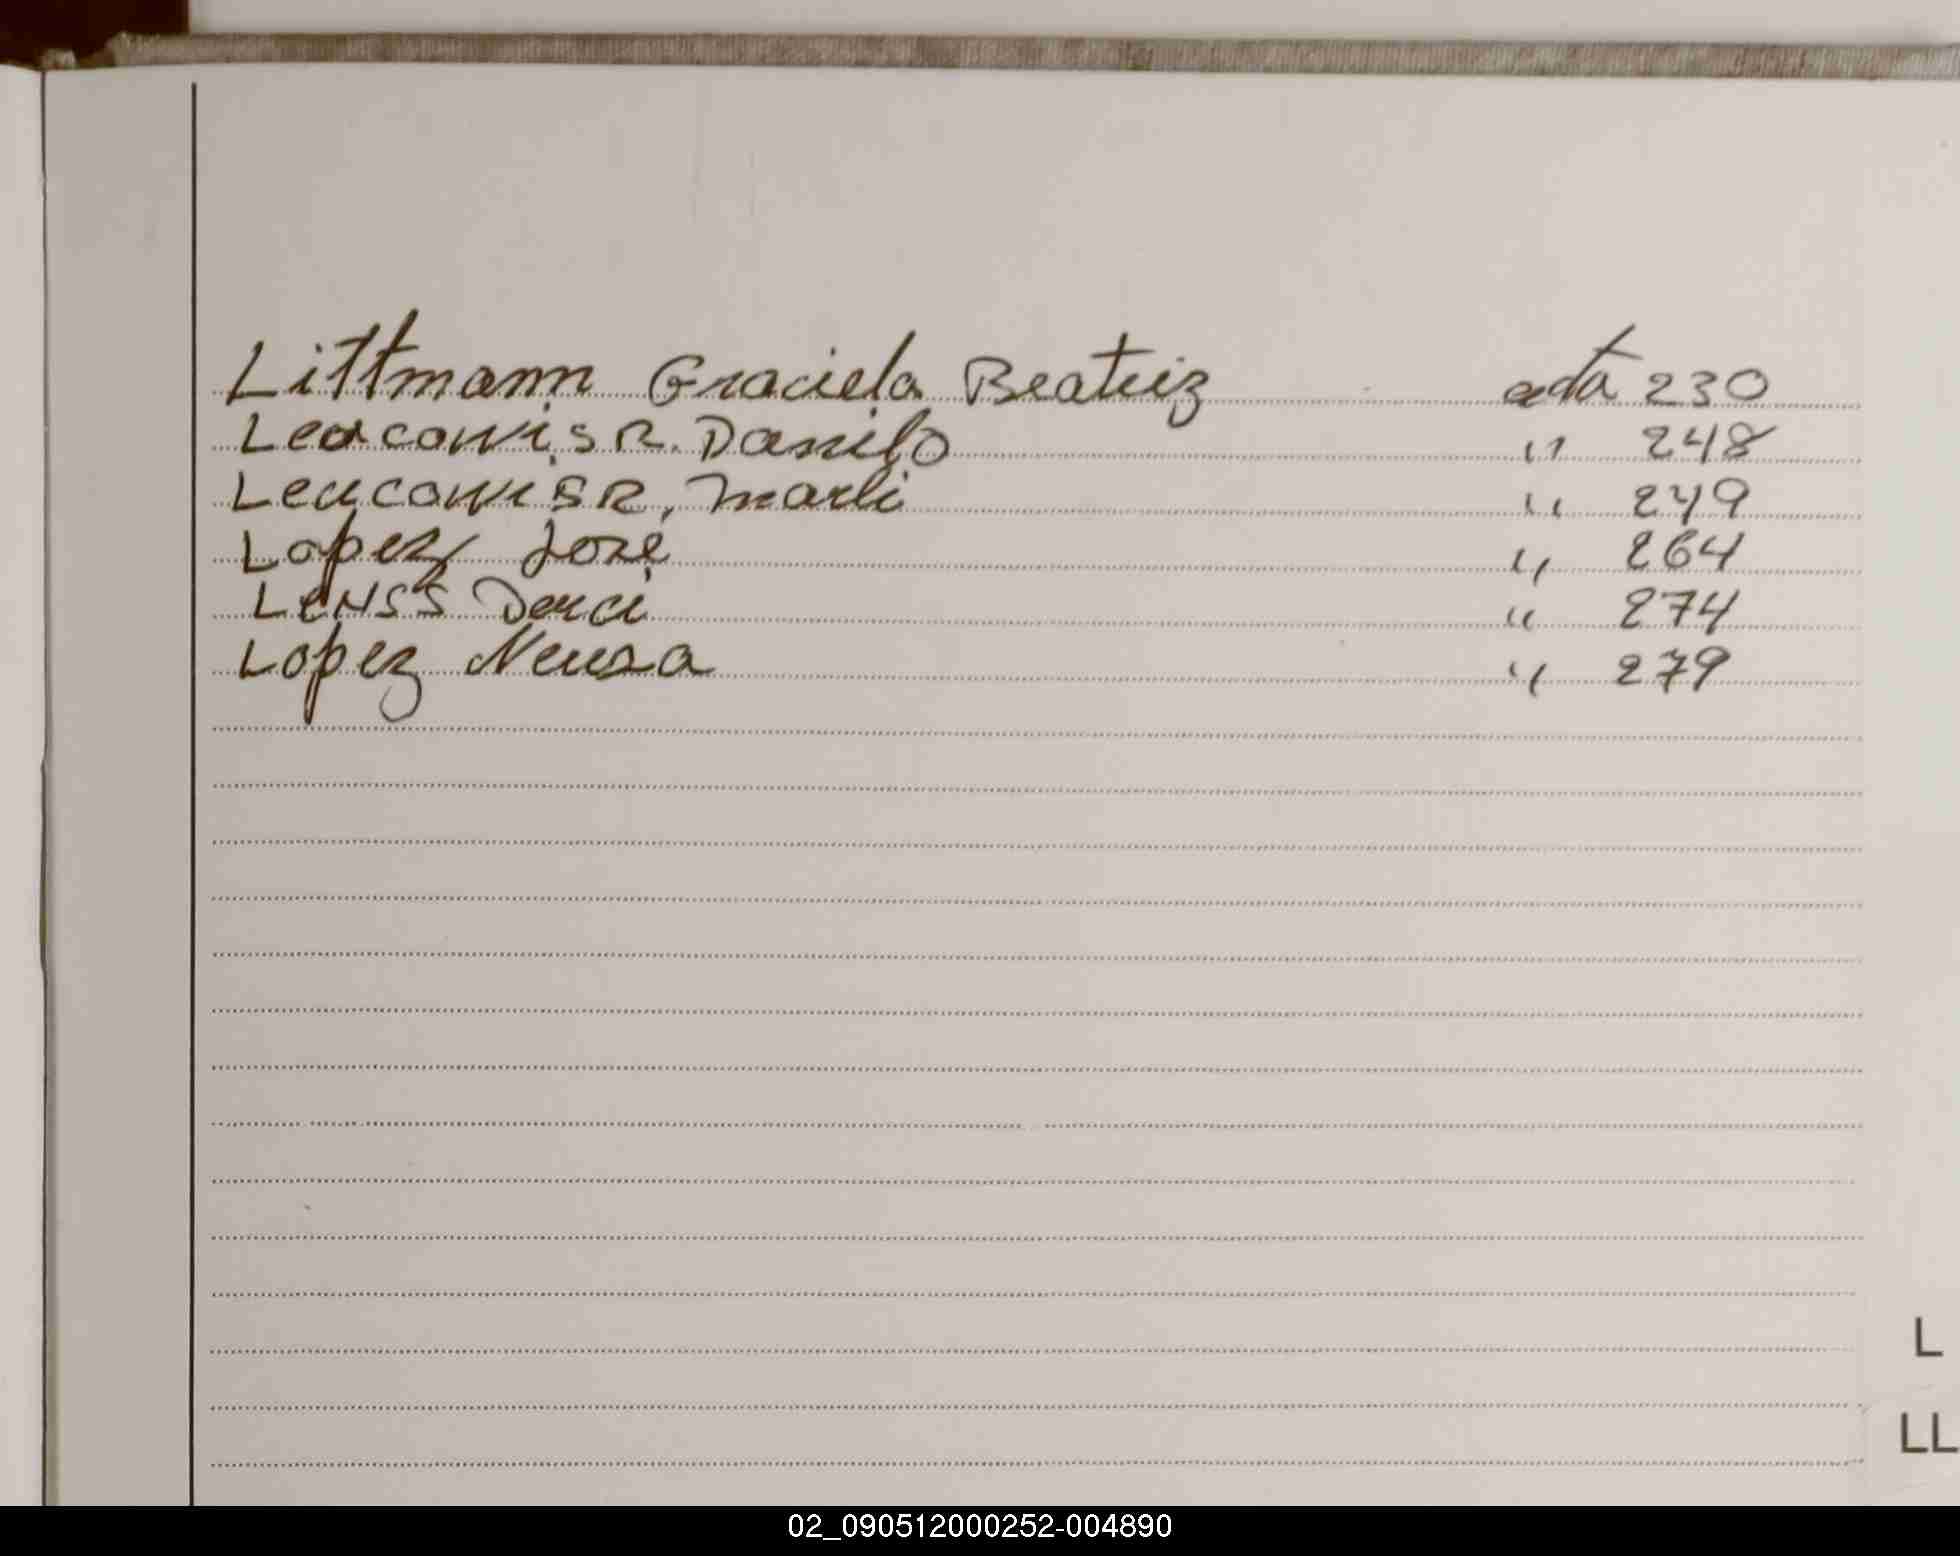 Littmann Graciela Beatriz acta 230
Leaconis R. Danilo " 248
Leaconis R, Marli " 249
Lopez José " 264
LeNSS Derci " 274
Lopez Neuza " 279
L
LL
02_090512000252-004890